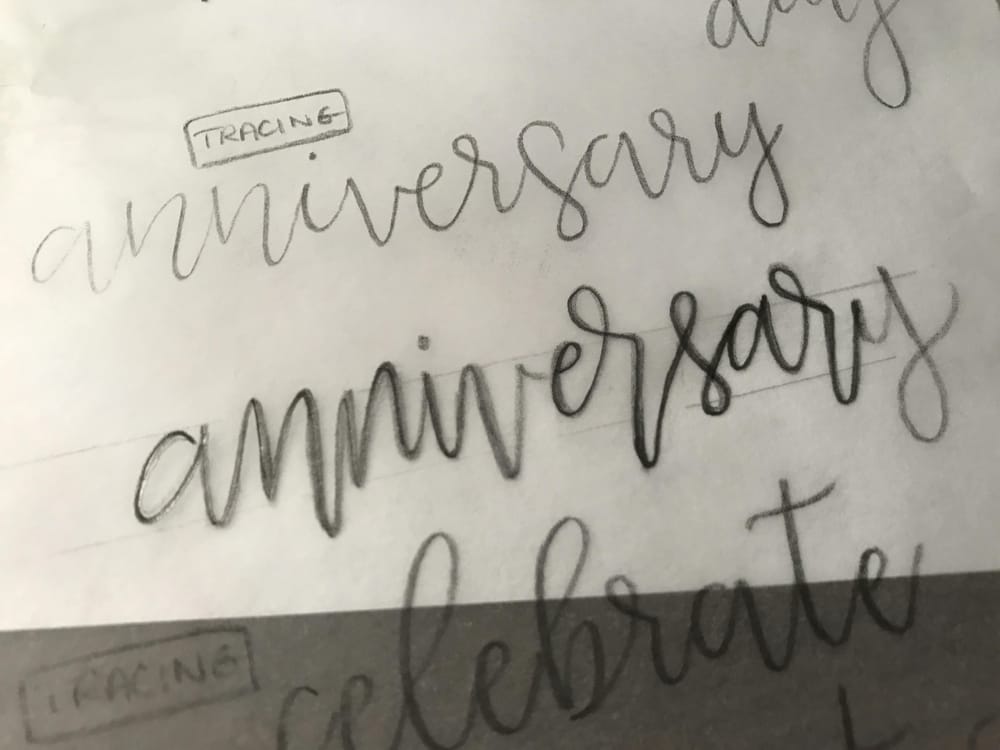 TRACING
anniversary
anniversary
celebrate
TRACING